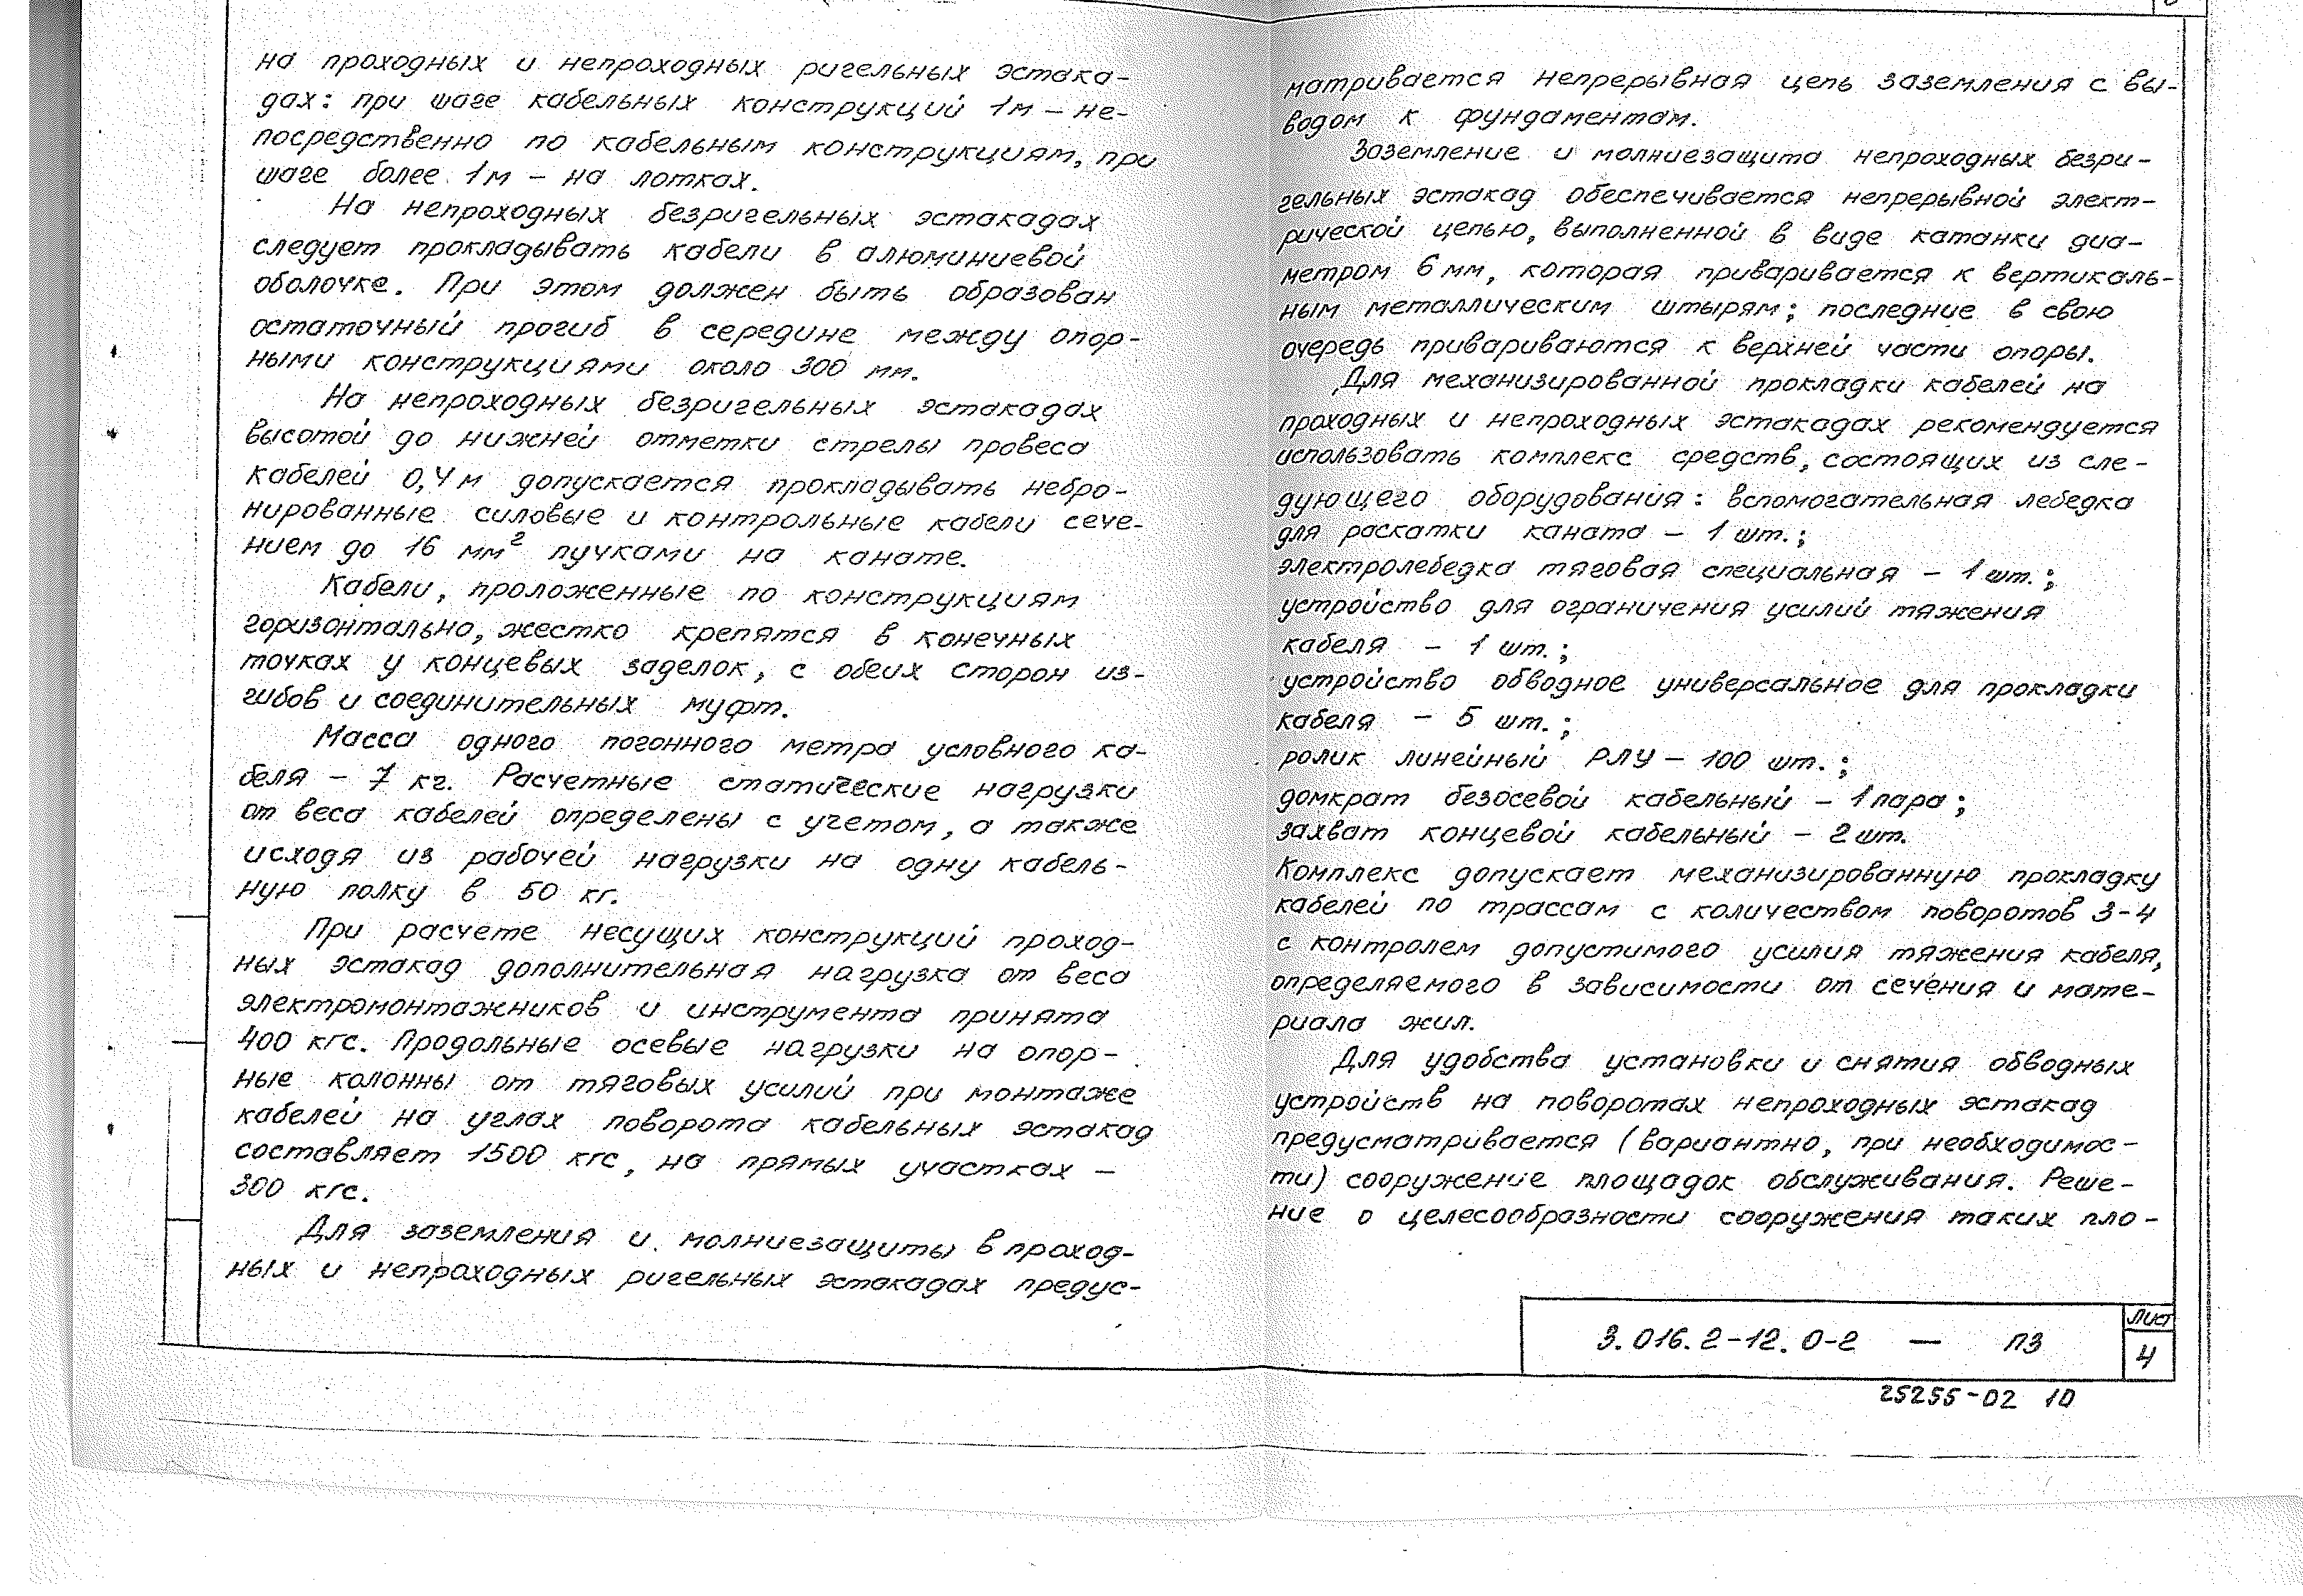 на проходных и непроходных ригельных эстака-
дах: при шаге кабельных конструкций 1м – не-
посредственно по кабельным конструкциям, при
шаге более 1м – на лотках.
На непроходных безригельных эстакадах
следует прокладывать кабели в алюминиевой
оболочке. При этом должен быть образован
остаточный прогиб в середине между опор-
ными конструкциями около 300 мм.
На непроходных безригельных эстакадах
высотой до нижней отметки стрелы провеса
кабелей 0,4м допускается прокладывать небро-
нированные силовые и контрольные кабели сече-
нием до 16 мм² пучками на канате.
Кабели, проложенные по конструкциям
горизонтально, жестко крепятся в конечных
точках у концевых заделок, с обеих сторон из-
гибов и соединительных муфт.
Масса одного погонного метра условного ка-
беля – 7 кг. Расчетные статические нагрузки
от веса кабелей определены с учетом, а также
исходя из рабочей нагрузки на одну кабель-
ную полку в 50 кг.
При расчете несущих конструкций проход-
ных эстакад дополнительная нагрузка от веса
электромонтажников и инструмента принята
400 кгс. Продольные осевые нагрузки на опор-
ные колонны от тяговых усилий при монтаже
кабелей на углах поворота кабельных эстакад
составляет 1500 кгс, на прямых участках –
300 кгс.
Для заземления и молниезащиты в проход-
ных и непроходных ригельных эстакадах предус-
матривается непрерывная цепь заземления с вы-
водом к фундаментам.
Заземление и молниезащита непроходных безри-
гельных эстакад обеспечивается непрерывной элект-
рической цепью, выполненной в виде катанки диа-
метром 6 мм, которая приваривается к вертикаль-
ным металлическим штырям; последние в свою
очередь привариваются к верхней части опоры.
Для механизированной прокладки кабелей на
проходных и непроходных эстакадах рекомендуется
использовать комплекс средств, состоящих из сле-
дующего оборудования: вспомогательная лебедка
для раскатки каната – 1 шт.;
электролебедка тяговая специальная – 1 шт.;
устройство для ограничения усилий тяжения
кабеля – 1 шт.;
устройство обводное универсальное для прокладки
кабеля – 5 шт.;
ролик линейный РЛУ – 100 шт.;
домкрат безосевой кабельный – 1 пара;
захват концевой кабельный – 2 шт.
Комплекс допускает механизированную прокладку
кабелей по трассам с количеством поворотов 3-4
с контролем допустимого усилия тяжения кабеля,
определяемого в зависимости от сечения и мате-
риала жил.
Для удобства установки и снятия обводных
устройств на поворотах непроходных эстакад
предусматривается (вариантно, при необходимос-
ти) сооружение площадок обслуживания. Реше-
ние о целесообразности сооружения таких пло-
3.016.2-12.0-2 — ПЗ
Лист
4
25255-02 10